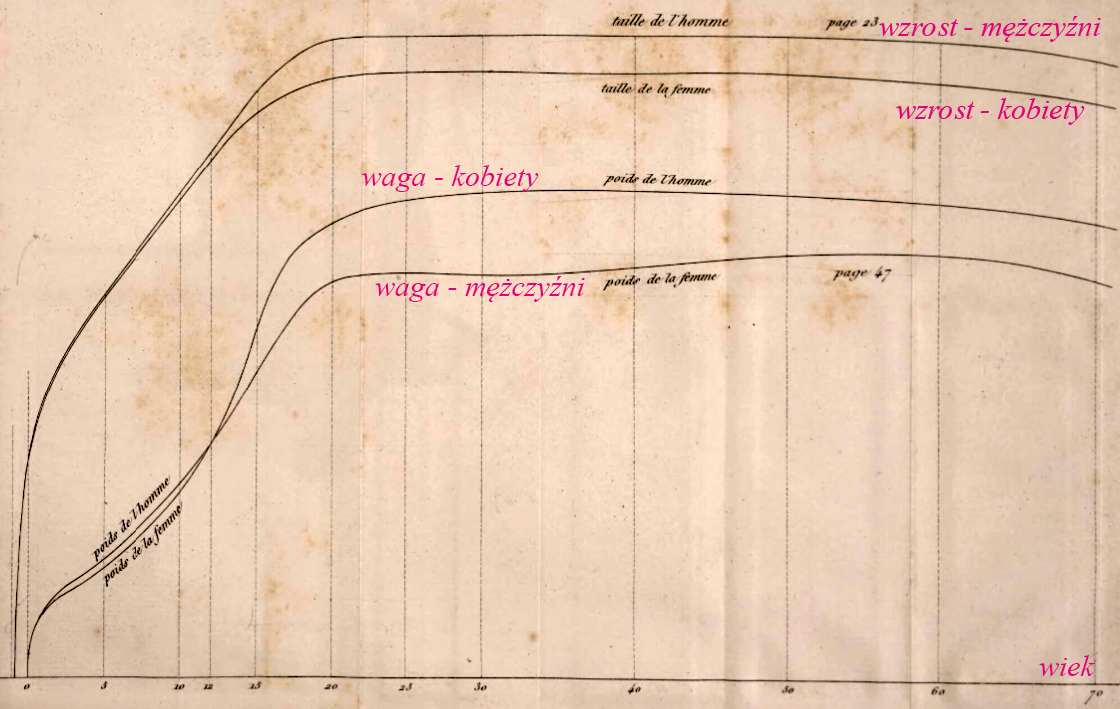 taille de l'homme
page 23
wzrost - mężczyźni
taille de la femme
wzrost - kobiety
waga - kobiety
poids de l'homme
waga - mężczyźni
poids de la femme
page 47
poids de l'homme
poids de la femme
wiek
0 5 10 12 15 20 25 30 40 50 60 70